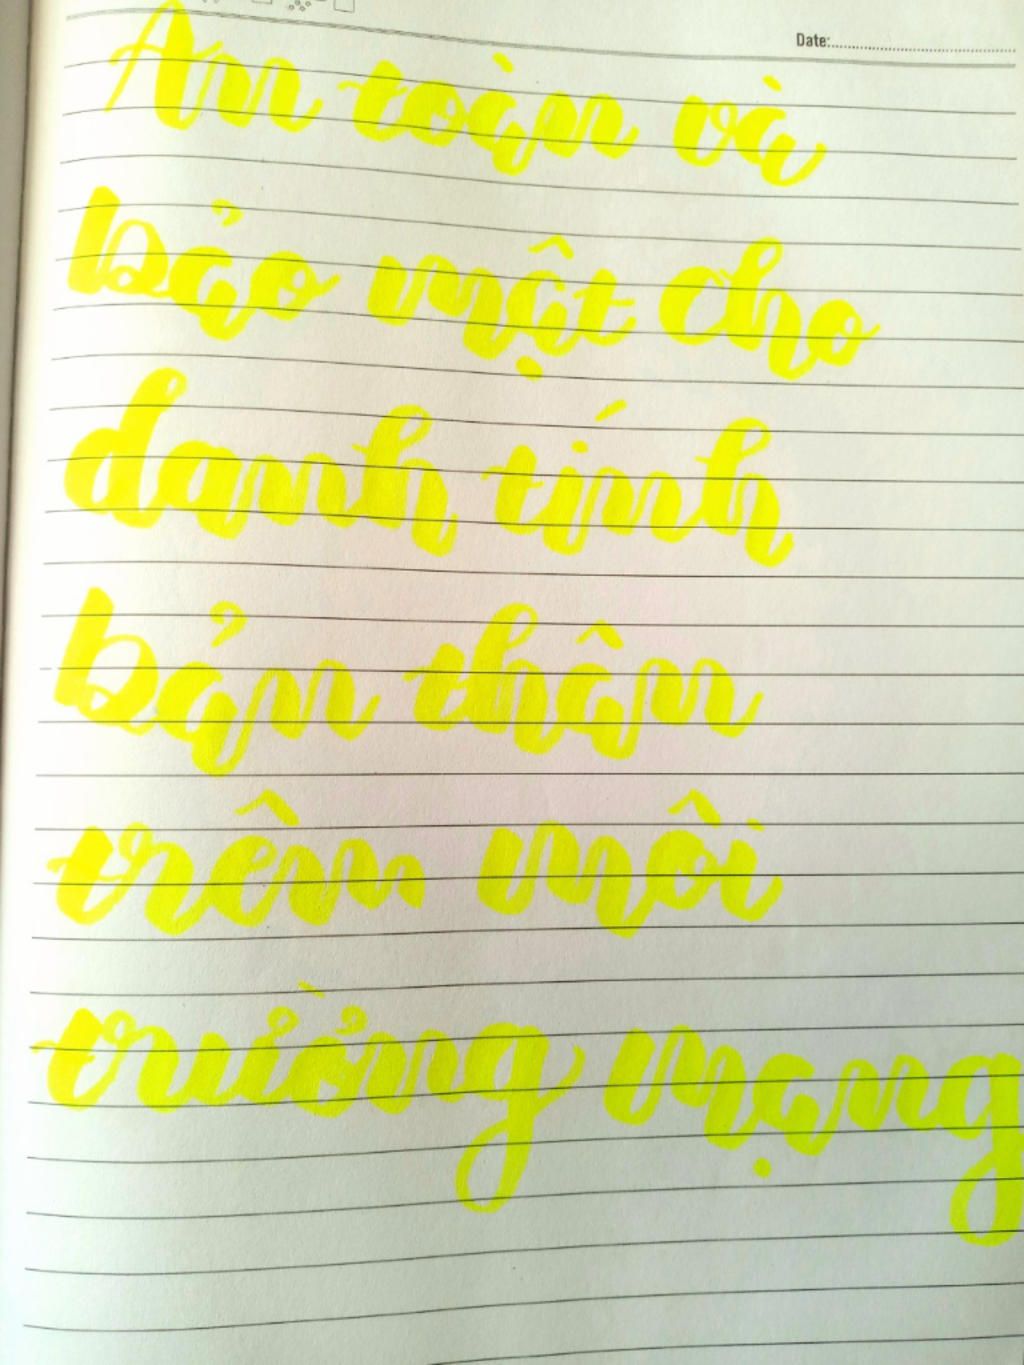 Date:
An toàn và
bảo mật cho
danh tính
bản thân
trên môi
trường mạng